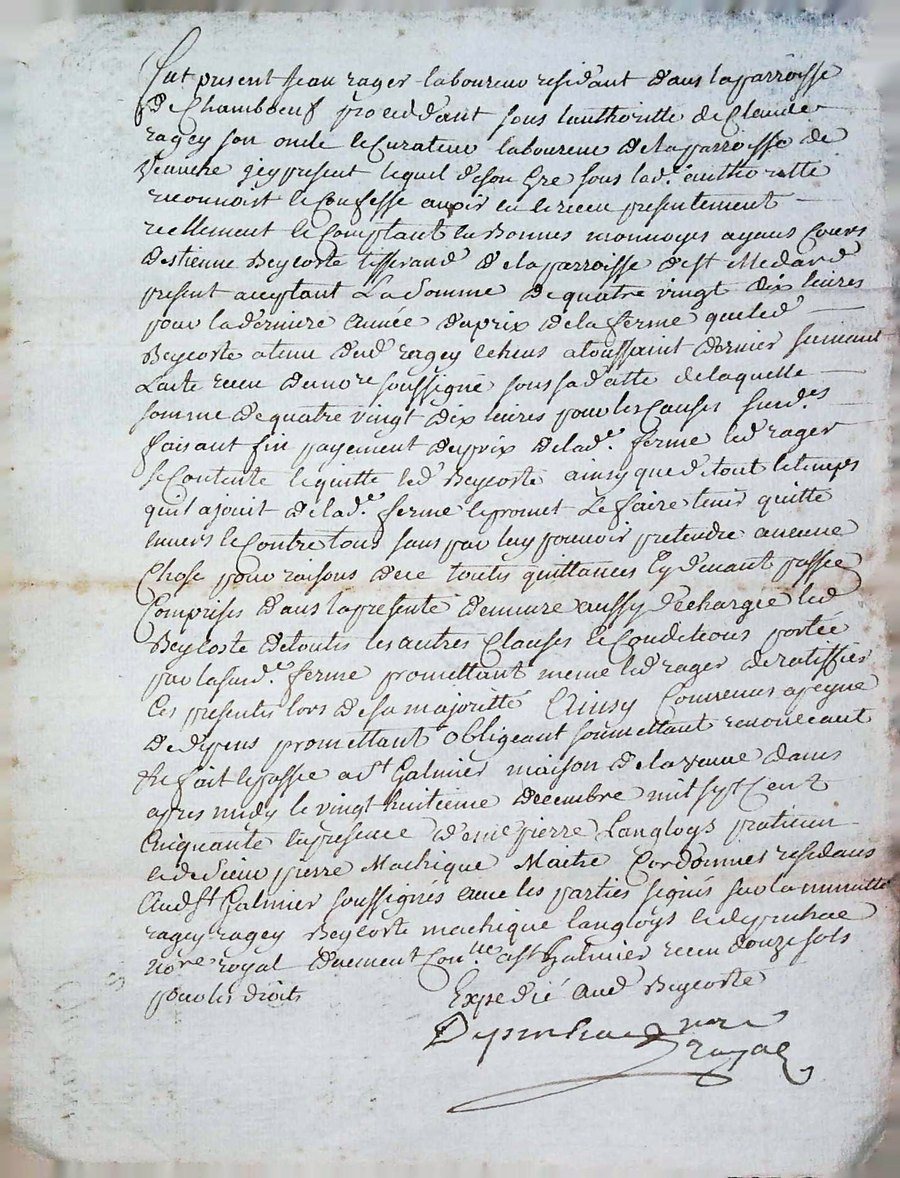 Fut present Jean ragey laboureur residant dans la parroisse
de Chambœuf procedant sous lauthoritte de Claude
ragey son oncle le Curateur laboureur de la parroisse de
Veauche jcy present lequel de son Gre sous lad.e authoritte
reconnoist le Confesse avoir eu le receu presentement
reellement le Comptant en Bonnes monnoyes ayans Cours
destienne Beycoste tisserand de la parroisse de St Medard
present acceptant La somme de quatre vingt dix livres
pour la derniere année du prix de la ferme que led
Beycoste a tenu dud ragey echeus a toussaint dernier suivant
Lacte receu du no.re soussigné sous sa datte de laquelle
somme de quatre vingt dix livres pour les Causes susd.es
faisant fin payement du prix de lad.e ferme led ragey
se Contente le quitte led Beycoste ainsy que de tout le temps
quil a jouit de lad.e ferme le promet Le faire tenir quitte
envers le Contre tous sans par luy pouvoir pretendre aucune
Chose pour raisons de ce toutes quittances Cy devant passée
Comprises dans la presente demeure aussy dechargée led
Beycoste de toutes les autres Clauses le Conditions portée
par la susd.e ferme promettant meme led ragey de ratiffier
Ces presentes lors de sa majoritté Ainsy Convenus a peyne
de depens promettant obligeant soumettant renonceant
fait le passé a St Galmier maison de la veuve dams
apres midy le vingt huitieme decembre mil sept Cent
Cinquante en presence pierre Langloys praticien
le de Sieur pierre Machique Maitre Cordonnier residans
Aud St Galmier soussignés avec les parties signés sur la minutte
ragey ragey Beycoste machique langloys le depinhac
no.re royal St Galmier receu douze sols
pour les droits
Expedié Aud Beycoste
Depinhac nore
royal